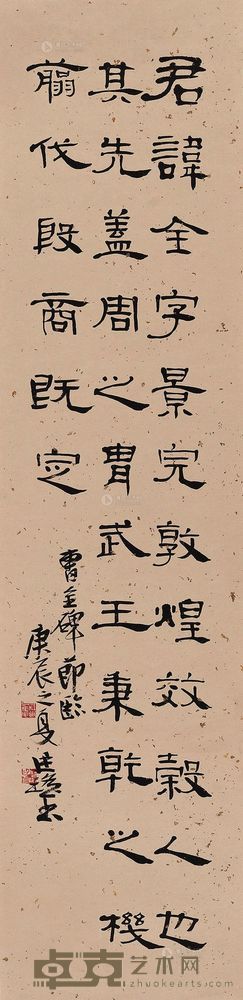 君諱全字景完敦煌效穀人也
其先蓋周之胄武王秉乾之機
翦伐殷商既定
曹全碑節臨
庚辰之夏
卓克艺术网
www.zhuokearts.com